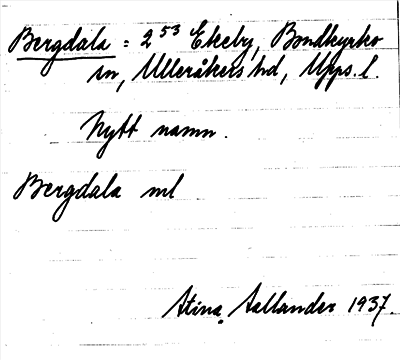 Bergdala = 2⁵³ Ekeby, Bondkyrko
sn, Ulleråkers hd, Upps. l.
Nytt namn.
Bergdala ml
Stina Aallander 1937.